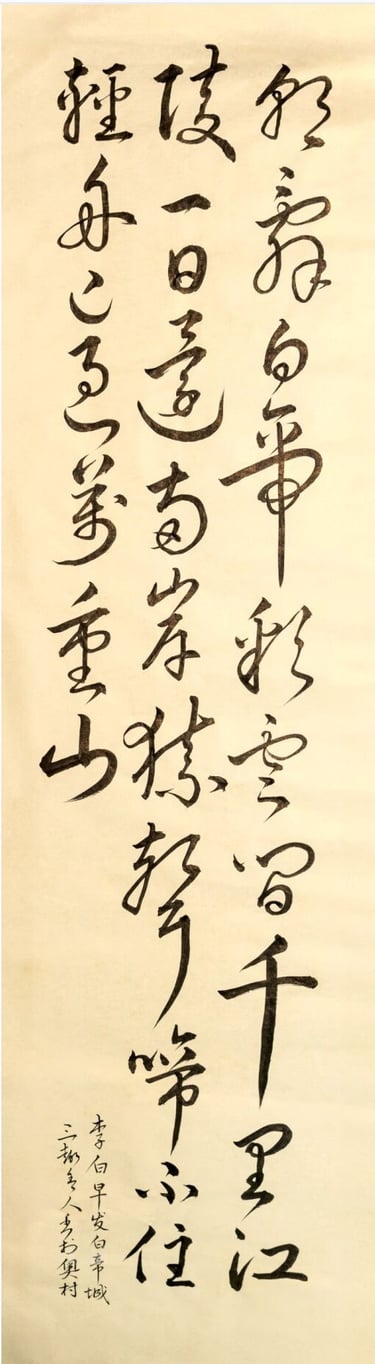 朝辭白帝彩雲間千里江
陵一日還兩岸猿聲啼不住
輕舟已過萬重山
李白早发白帝城
三趣舍人书於奥村